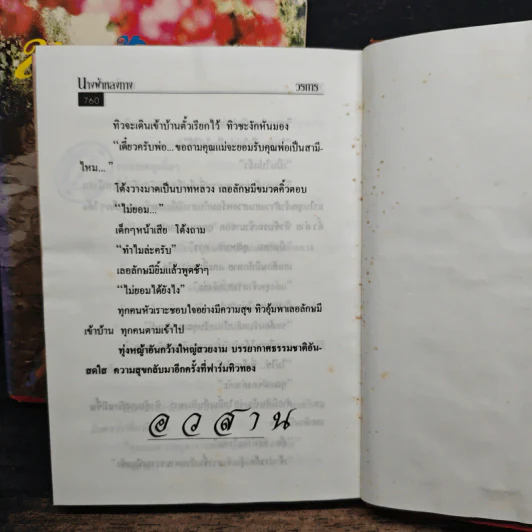 นางฟ้าหลงทาง
วราภา
760
ทิวจะเดินเข้าบ้านตั๋วเรียกไว้ ทิวชะงักหันมอง
“เดี๋ยวครับพ่อ...ขอถามคุณแม่จะยอมรับคุณพ่อเป็นสามี-
ไหม...”
โต้งวางมาดเป็นบาทหลวง เลอลักษมีขมวดคิ้วตอบ
“ไม่ยอม...”
เด็กๆหน้าเสีย โต้งถาม
“ทำไมล่ะครับ”
เลอลักษมียิ้มแล้วพูดช้าๆ
“ไม่ยอมได้ยังไง”
ทุกคนหัวเราะชอบใจอย่างมีความสุข ทิวอุ้มพาเลอลักษมี
เข้าบ้าน ทุกคนตามเข้าไป
ทุ่งหญ้าอันกว้างใหญ่สวยงาม บรรยากาศธรรมชาติอัน-
สดใส ความสุขกลับมาอีกครั้งที่ฟาร์มทิวทอง
อวสาน